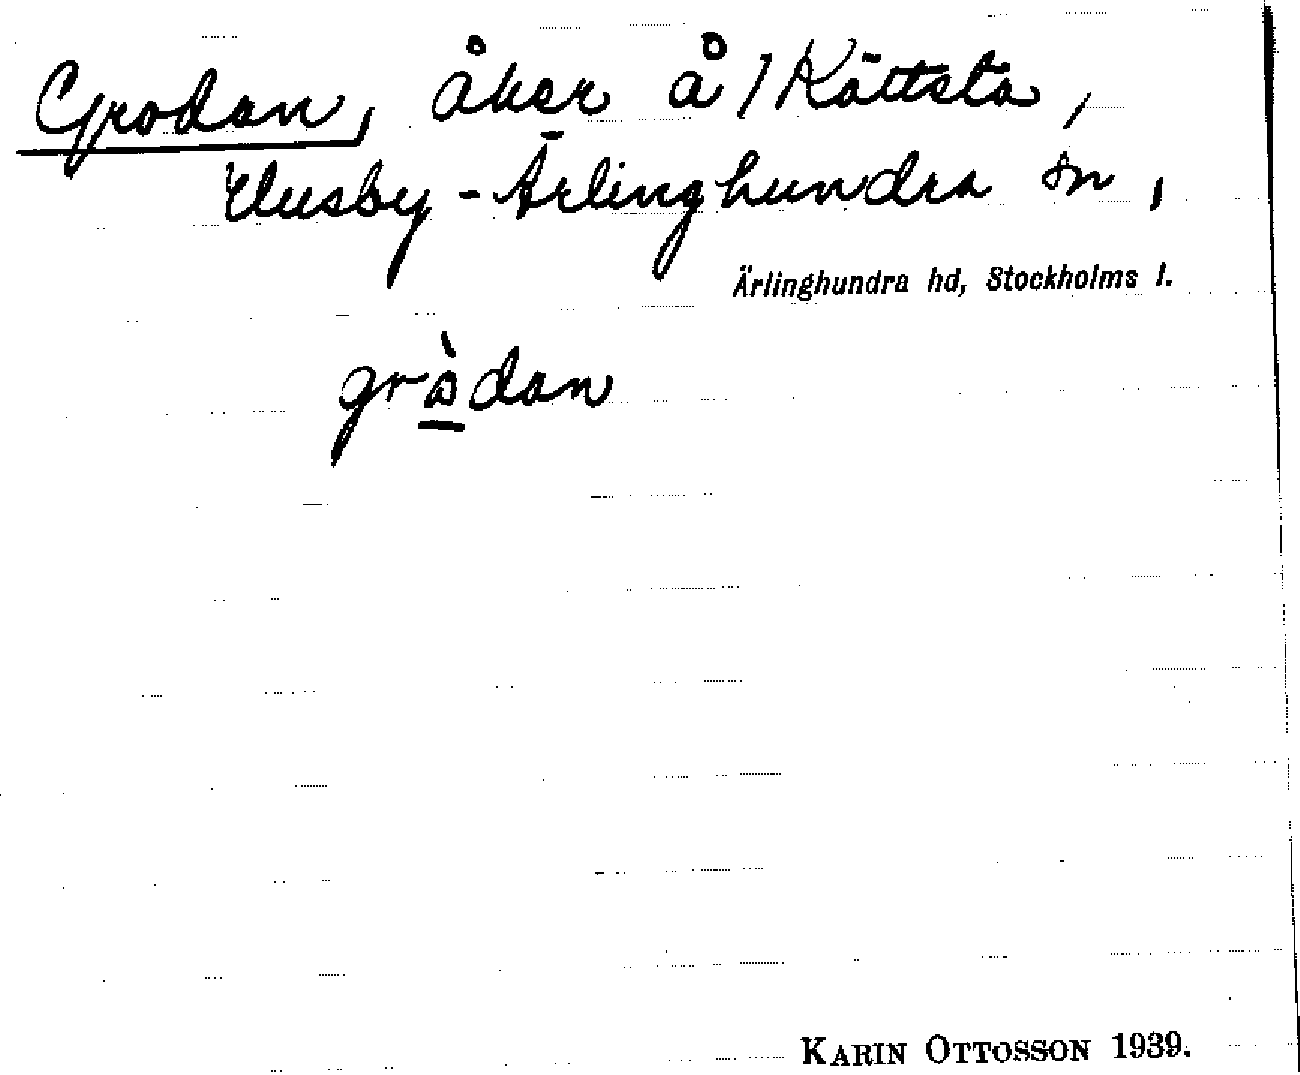 Grodan, åker å 1 Kättsta,
Husby-Ärlinghundra sn,
Ärlinghundra hd, Stockholms l.
gròdan
KARIN OTTOSSON 1939.